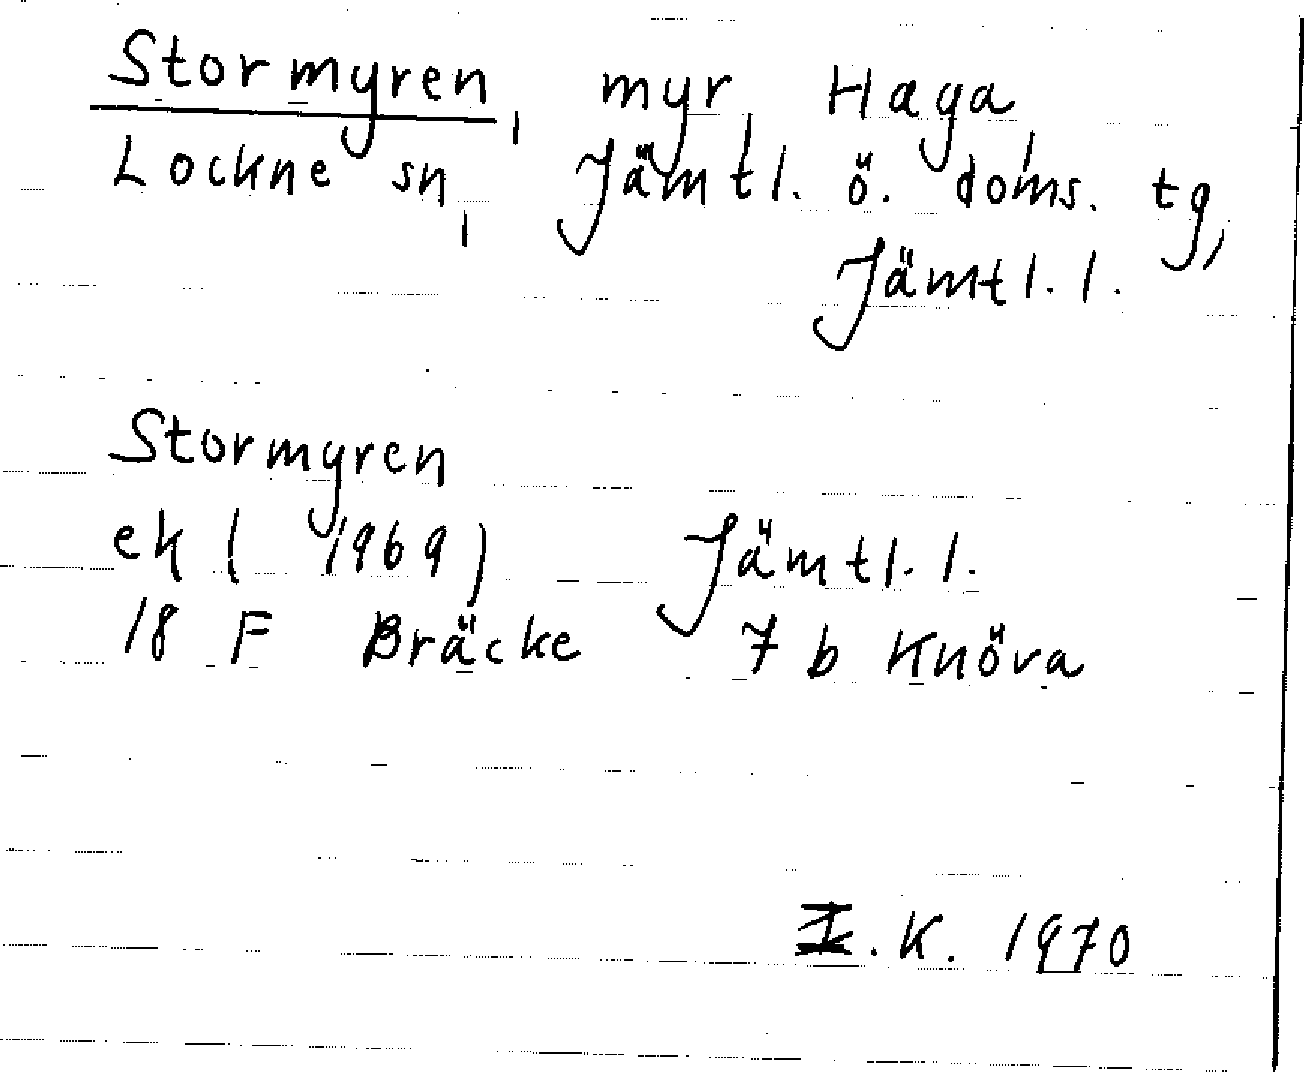 Stormyren, myr, Haga,
Lockne sn, Jämtl. ö. doms. tg,
Jämtl. l.
Stormyren
ek ( 1969) Jämtl. l.
18 F Bräcke 7 b Knöra
I.K. 1970